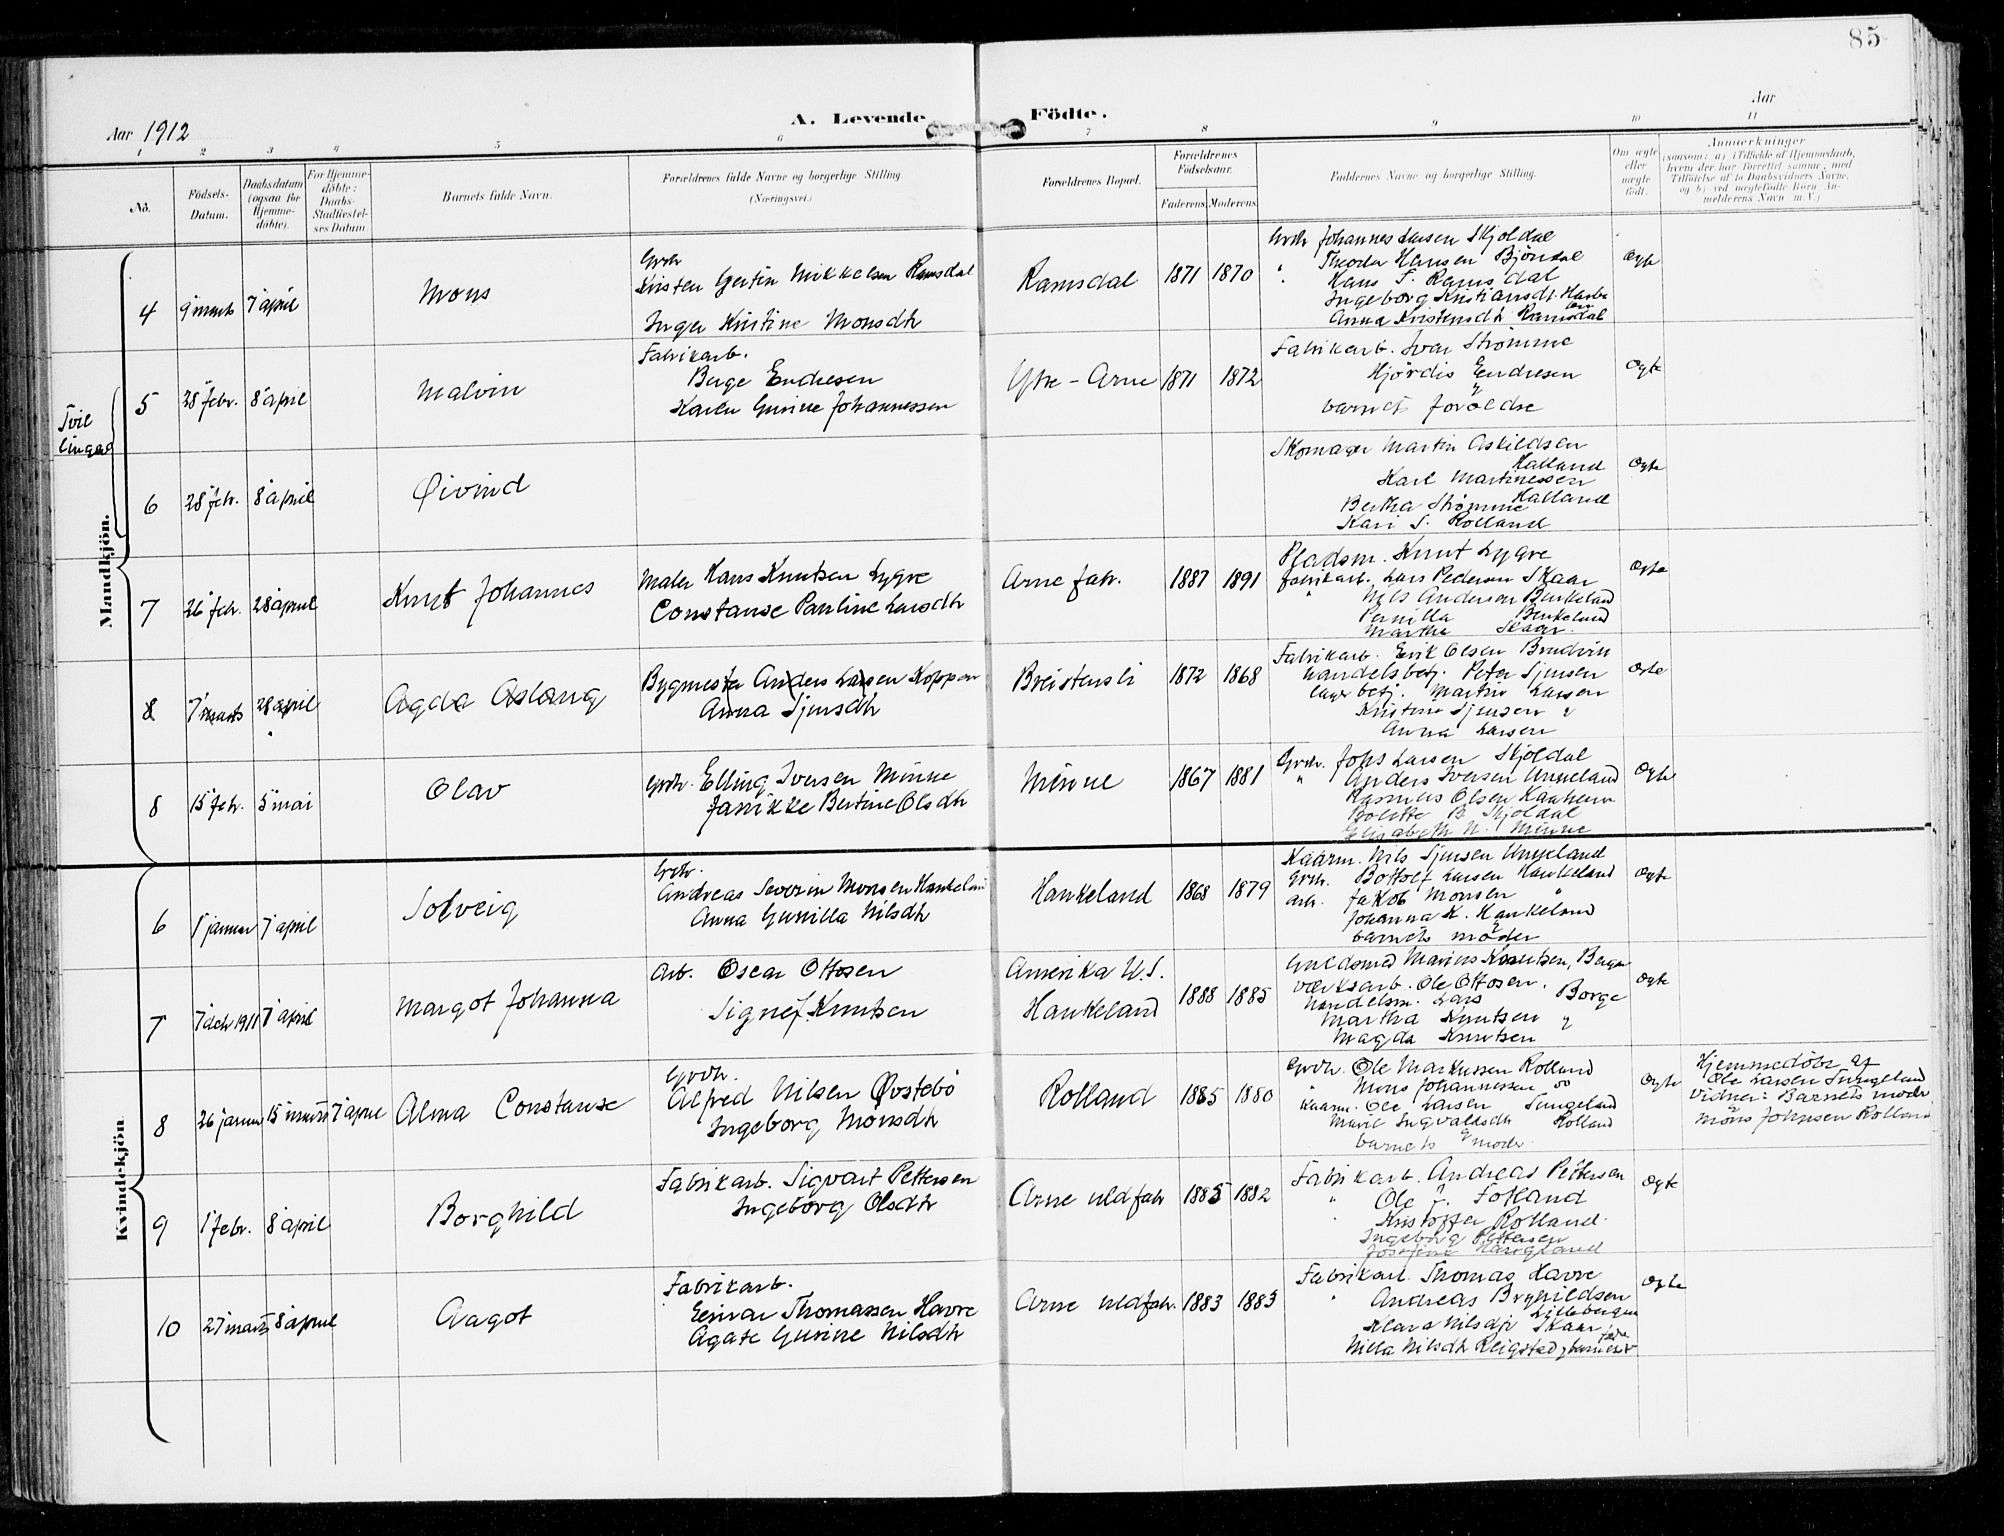 85
Aar 1912
A. Levende Födte.
Aar
1 2 3 4 5 6 7 8 9 10 11
No.
Födsels-Datum.
Daabsdatum (ogsaa for Hjemme-döbte).
For Hjemme-döbte: Daabs-Stadfæstel-ses Datum
Barnets fulde Navn.
Forældrenes fulde Navne og borgerlige Stilling. (Næringsvei.)
Forældrenes Bopæl.
Forældrenes Födselsaar.
Faderens. Moderens.
Faddernes Navne og borgerlige Stilling.
Om ægte eller uægte födt.
Anmærkninger
(saasom: a) i Tilfælde af Hjemmedaab, hvem der har forrettet samme, med Tilföielse af to Daabsvidners Navne, og b) ved uægtefödte Börn An-melderens Navn m. V.)
Mandkjön.
4 9 marts 7 april Mons
Grdr
Kristen Gertin Mikkelsen Ramsdal
Inger Kristine Monsdtr
Ramsdal 1871 1870
Grdr Johannes Larsen Skjoldal
" Theodor Hansen Bjöndal
" Hans T. Ramsdal
Ingeborg Kristiansdt.
Anna Kristensdtr Ramsdal
Ægte
Tvil
lingar
5 28 febr. 8 april Malvin
Fabrikarb.
Berge Endresen
Karen Gurine Johannessen
Ytre-Arne 1871 1872
Fabrikarb. Ivar Strømme
Hjördis Endresen
barnets foröldre
Ægte
6 28 febr. 8 april Øivind
Skomager Martin Askildsen
Halland
Karl Martinessen
Halland
Bertha Strømme
Kari S. Rolland
Ægte
7 26 febr. 28 april Knut Johannes
Maler Hans Knutsen Lygre
Constanse Pauline Larsdtr
Arne fabr. 1887 1891
Pladsm. Knut Lygre
Fabrikarb. Lars Pedersen Skaar
" Nils Andersen Birkeland
Pernilla Birkeland
Martha Skaar.
Ægte
8 7 marts 28 april Agda Aslaug
Bygmester Anders Larsen Koppen
Anna Sjursdtr
Breistensli 1872 1868
Fabrikarb. Erik Olsen Brudvik
handelsbetj. Peter Sjursen
lagerbetj. Martin Larsen
Kristine Sjursen
Anna Larsen
Ægte
8 15 febr. 5 mai Olav
Grdr. Elling Iversen Minne
Janikke Bertine Olsdtr
Minne 1867 1881
Grdr. Johs Larsen Skjoldal
" Anders Iversen Unneland
Rasmus Olsen
Bolette B. Skjoldal
Elisabeth N. Minne
Ægte
Kvindekjön
6 1 januar 7 april Solveig
Grdr.
Andreas Severin Monsen Haukeland
Anna Gunilla Nilsdtr
Haukeland 1868 1879
Kaarm. Nils Sjursen Unneland
Grdr. Bottolf Larsen Haukeland
arb. Jakob Monsen "
Johanna K. Haukeland
barnets moder
Ægte
7 7 dcbr 1911 7 april Margot Johanna
Arb. Oscar Ottosen
Signe J Knutsen
Amerika U.S.
Haukeland 1888 1885
Guldsmed Marius Knutsen, Bergen
værksarb. Ole Ottosen.
handelsm. Lars Borge
Martha Knutsen "
Magda Knutsen
Ægte
8 26 januar 15 marts 7 april Alma Constanse
Grdr.
Alfred Nilsen Øvstebö
Ingeborg Monsdtr
Rolland 1885 1880
Grdr. Ole Markussen Rolland
" Mons Johannessen "
Kaarm. Ole Larsen Tungeland
Marie Ingvaldsdtr Rolland
barnets moder
Ægte
Hjemmedöbt af
Ole Larsen Tungeland
Vidner: Barnets moder
Mons Johnsen Rolland
9 1 febr. 8 april Borghild
Fabrikarb. Sigvart Pettersen
Ingeborg Olsdtr
Arne uldfabr 1885 1882
Fabrikarb. Andreas Pettersen
" Ole J. Fotland
" Kristoffer Rolland
Ingeborg Pettersen
Josefine Haugland
Ægte
10 27 marts 8 april Aagot
Fabrikarb.
Einar Thomassen Havre
Agate Gurine Nilsdtr
Arne uldfabr. 1883 1883
Fabrikarb. Thomas Havre
" Andreas Brynildsen
Lillebergen
Klara Nilsdtr Skaar
Nilla Nilsdtr Reigstad, barnets fader
Ægte